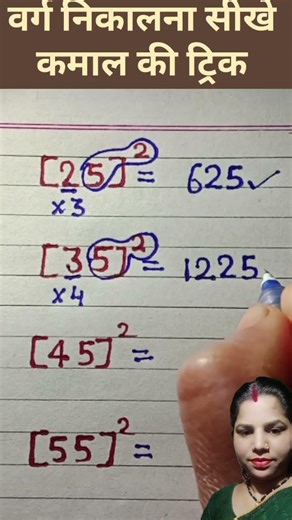 वर्ग निकालना सीखे
कमाल की ट्रिक
[25]² = 625✓
×3
[35]² = 1225
×4
[45]² =
[55]² =